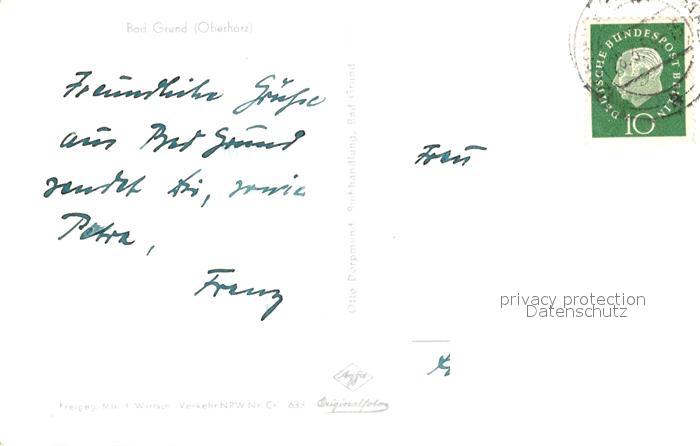 Bad Grund (Oberharz)
Freundliche Grüße
aus Bad Grund
sendet Dir, sowie
Petra,
Franz
Otto Dorpmund, Buchhandlung, Bad Grund
DEUTSCHE BUNDESPOST BERLIN
10
Frau
privacy protection
Datenschutz
Agfa
Originalfoto
Freigeg. Min. f. Wirtsch. u. Verkehr NRW Nr. Cr 633